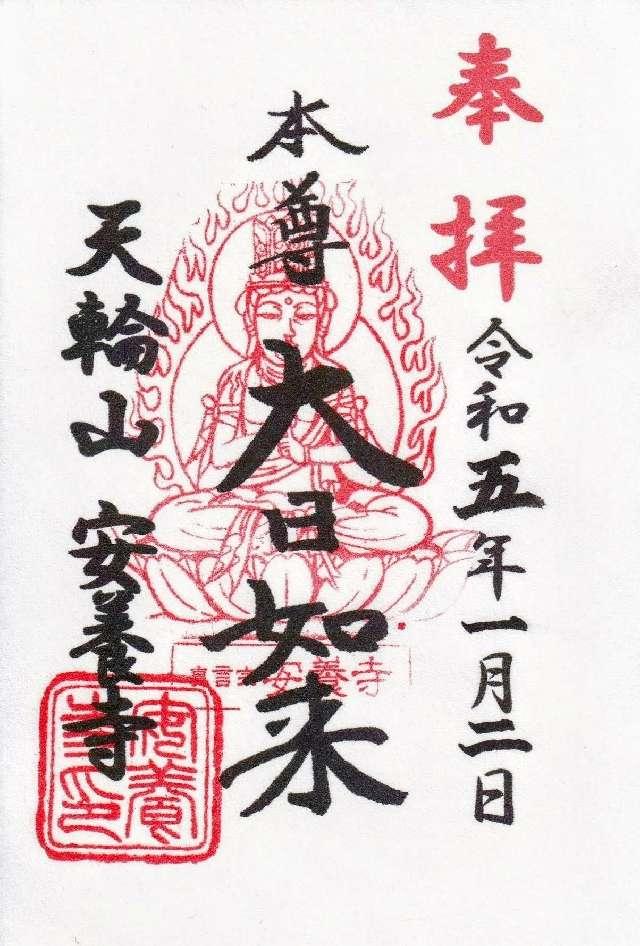 奉拝
令和五年一月二日
本尊
大日如来
天輪山 安養寺
真言宗 安養寺
安養寺印